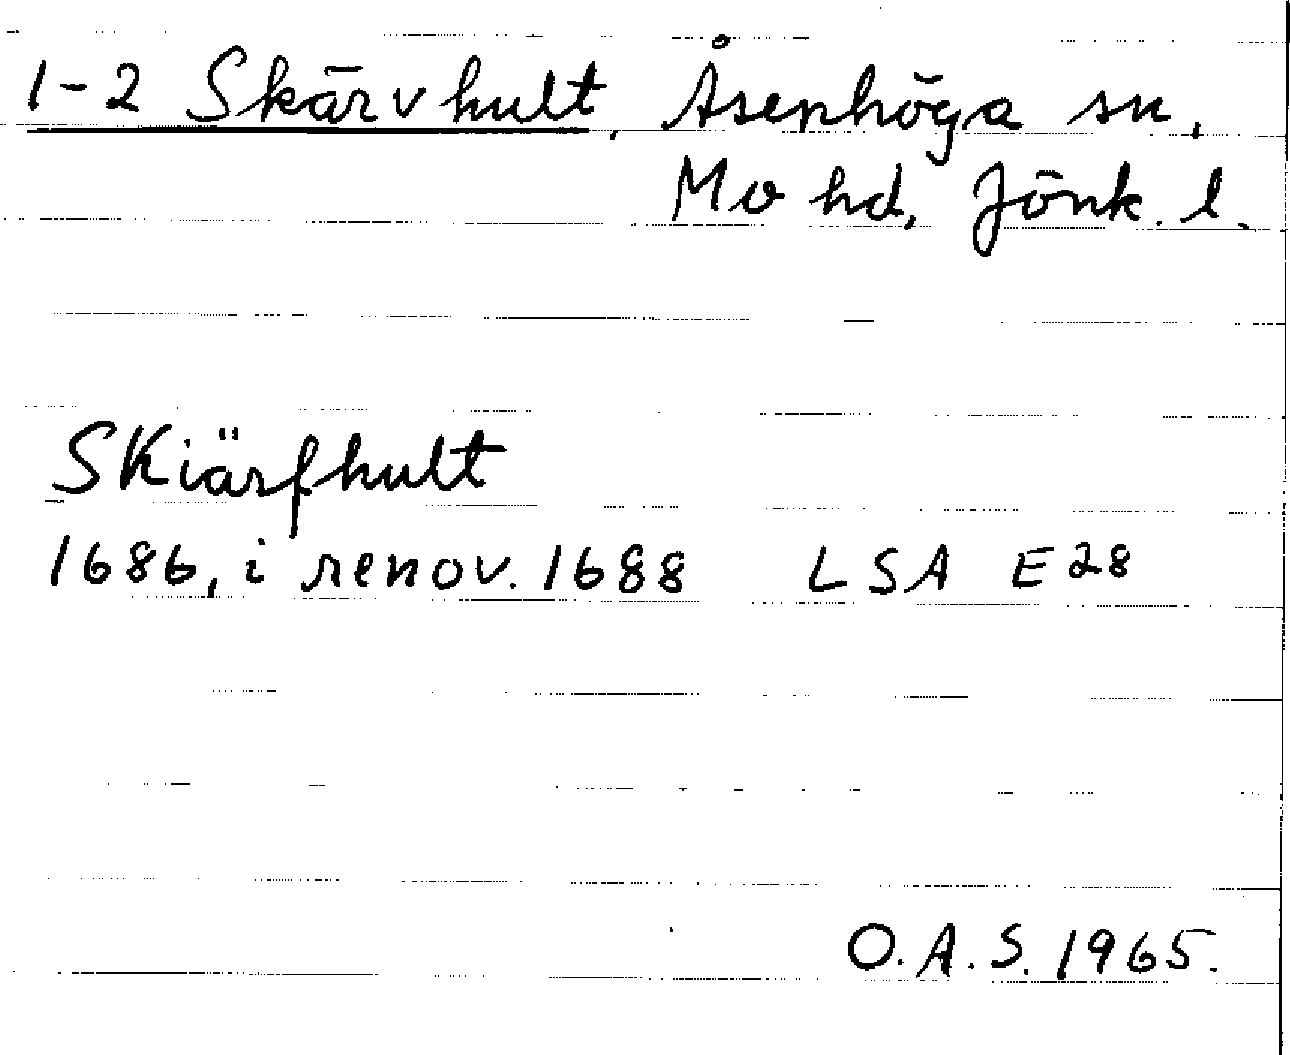 1-2 Skärvhult, Åsenhöga sn,
Mo hd, Jönk. l.
Skiärfhult
1686, i renov. 1688 LSA E28
O.A.S. 1965.